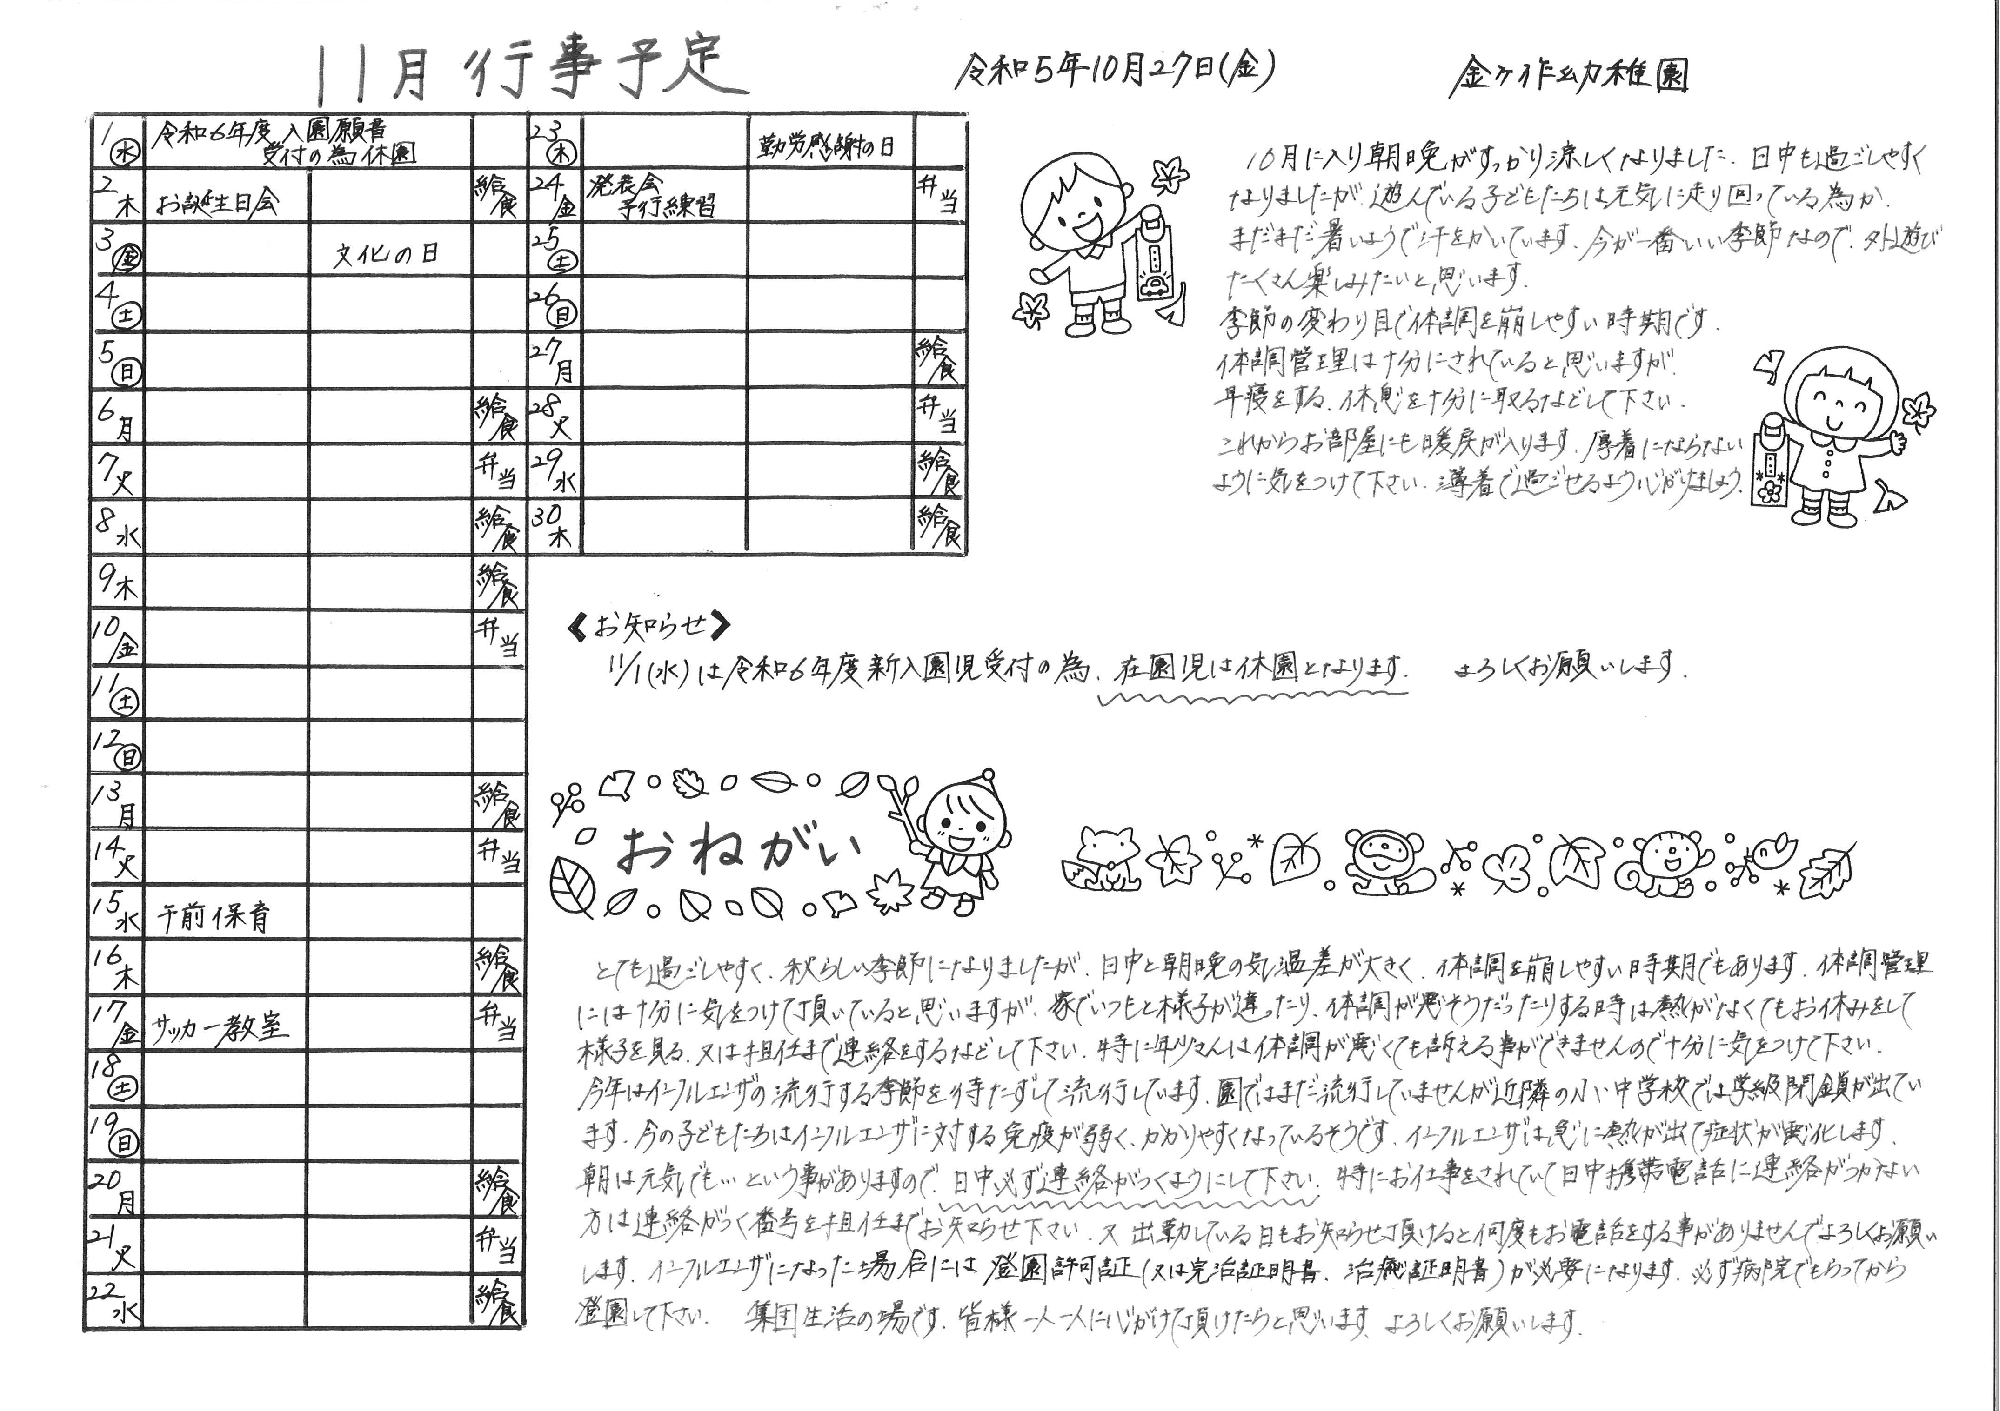 11月 行事予定
令和5年10月27日(金)
金ヶ作幼稚園
1 水 令和6年度 入園願書
受付の為 休園
2 木 お誕生日会 給食
3 金 文化の日
4 土
5 日
6 月 給食
7 火 弁当
8 水 給食
9 木 給食
10 金 弁当
11 土
12 日
13 月 給食
14 火 弁当
15 水 午前保育
16 木 給食
17 金 サッカー教室 弁当
18 土
19 日
20 月 給食
21 火 弁当
22 水 給食
23 木 勤労感謝の日
24 金 発表会
予行練習 弁当
25 土
26 日
27 月 給食
28 火 弁当
29 水 給食
30 木 給食
10月に入り朝晩がすっかり涼しくなりました。日中も過ごしやすく
なりましたが、遊んでいる子どもたちは元気に走り回っている為か、
まだまだ暑いようで汗をかいています。今が一番いい季節なので、外遊び
たくさん楽しみたいと思います。
季節の変わり目で体調を崩しやすい時期です。
体調管理は十分にされていると思いますが、
早寝をする、休息を十分に取るなどして下さい。
これからお部屋にも暖房が入ります。厚着にならない
ように気をつけて下さい。薄着で過ごせるよう心がけましょう。
《お知らせ》
11/1(水)は令和6年度新入園児受付の為、在園児は休園となります。 よろしくお願いします。
おねがい
とても過ごしやすく、秋らしい季節になりましたが、日中と朝晩の気温差が大きく、体調を崩しやすい時期でもあります。体調管理
には十分に気をつけて頂いていると思いますが、家でいつもと様子が違ったり、体調が悪そうだったりする時は熱がなくてもお休みをして
様子を見る、又は担任まで連絡をするなどして下さい。特に年少さんは体調が悪くても訴える事ができませんので十分に気をつけて下さい。
今年はインフルエンザの流行する季節を待たずして流行しています。園ではまだ流行していませんが近隣の小・中学校では学級閉鎖が出てい
ます。今の子どもたちはインフルエンザに対する免疫が弱く、かかりやすくなっているそうです。インフルエンザは急に熱が出て症状が悪化します。
朝は元気でも…という事がありますので、日中必ず連絡がつくようにして下さい。特にお仕事をされていて日中携帯電話に連絡がつかない
方は連絡がつく番号を担任までお知らせ下さい。又 出勤している日もお知らせ頂けると何度もお電話をする事がありませんでよろしくお願い
します。インフルエンザになった場合には 登園許可証(又は完治証明書、治癒証明書)が必要になります。必ず病院でもらってから
登園して下さい。 集団生活の場です。皆様一人一人に心がけて頂けたらと思います。よろしくお願いします。